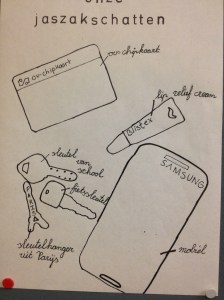 onze
jaszakschatten
ov-chipkaart
ov-chipkaart
lip relief cream
Blistex
sleutel
van
school
fietssleutel
SAMSUNG
sleutelhanger
uit Parijs
mobiel